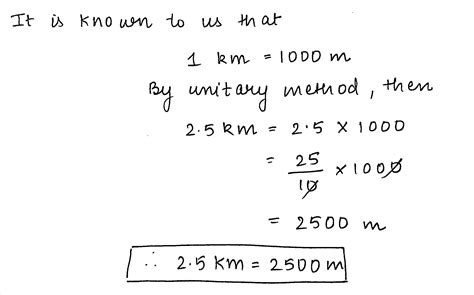 It is known to us that
1 km = 1000 m
By unitary method, then
2.5 km = 2.5 × 1000
= 25/10 × 1000
= 2500 m
∴ 2.5 km = 2500 m